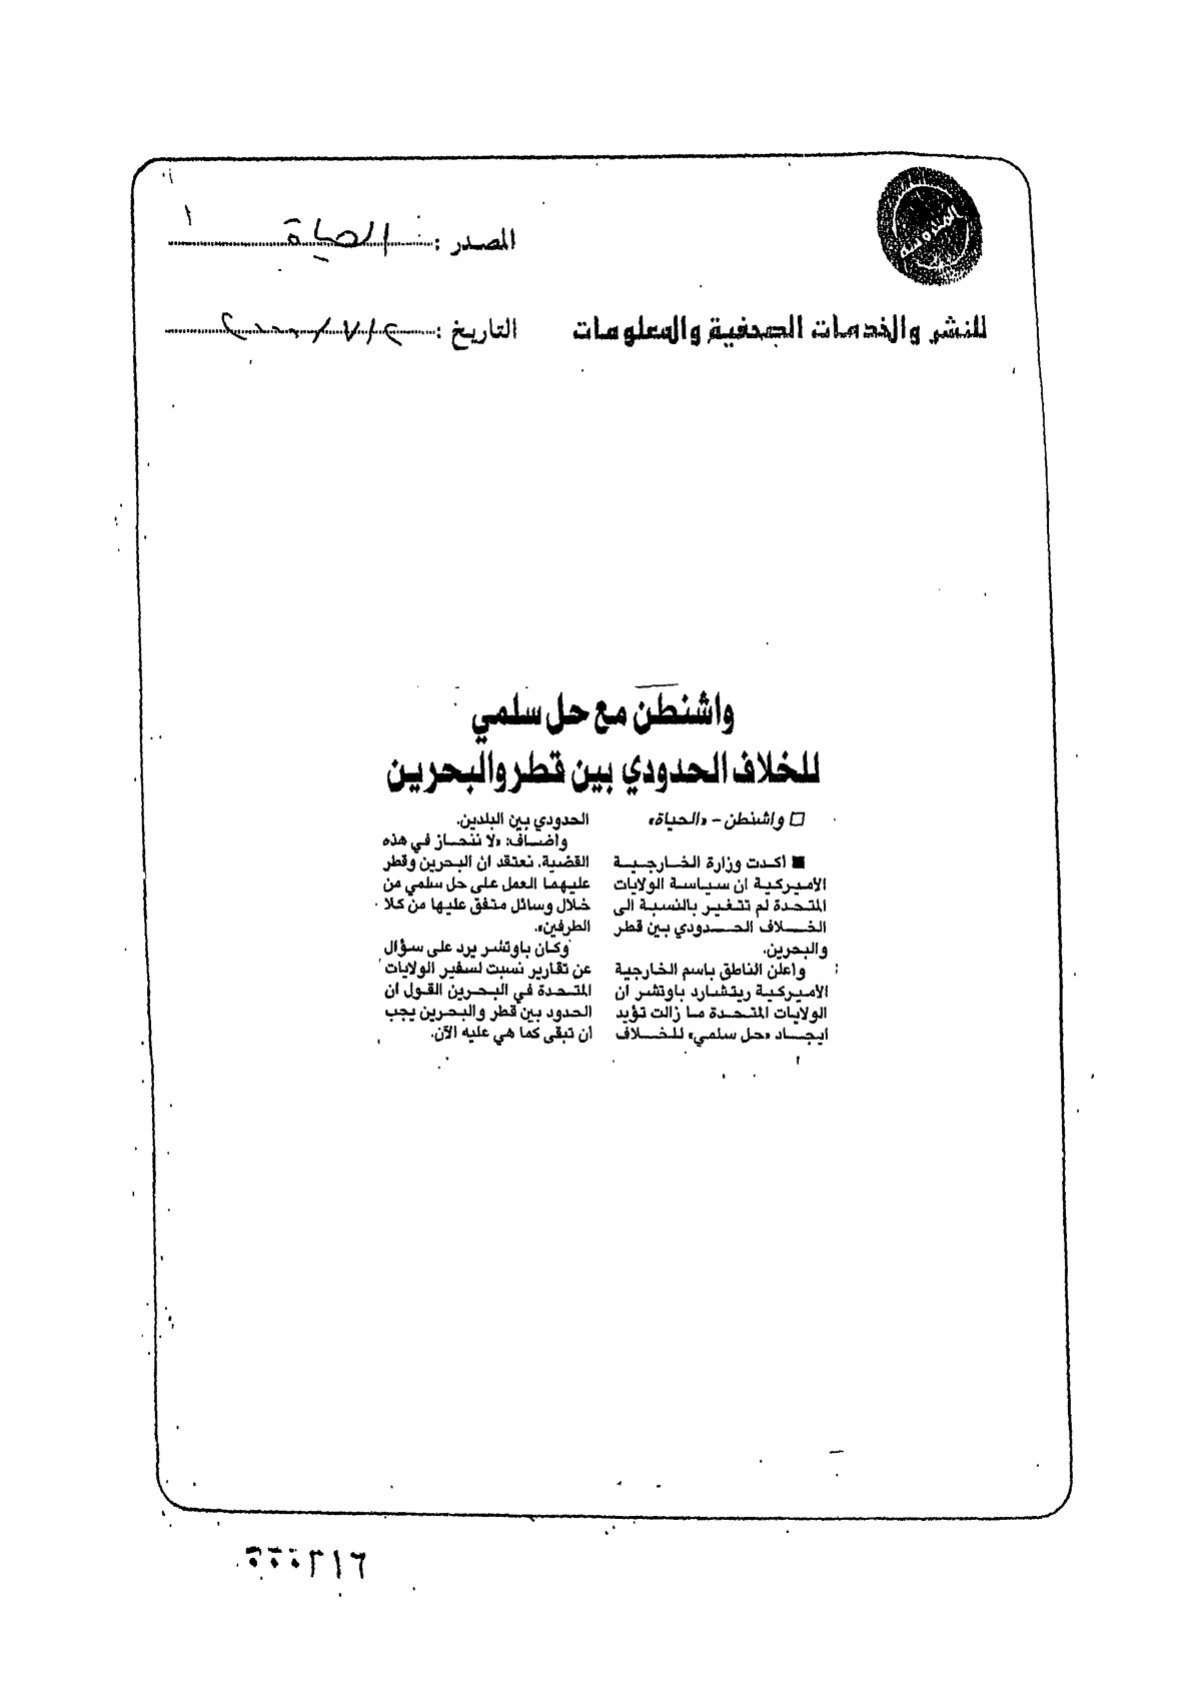 المحروسة
المصدر : الحياة
للنشر والخدمات الصحفية والمعلومات
التاريخ : ٢/٧/٢٠٠٠
واشنطن مع حل سلمي
للخلاف الحدودي بين قطر والبحرين
□ واشنطن - «الحياة»
■ اكدت وزارة الخارجية
الأميركية ان سياسة الولايات
المتحدة لم تتغير بالنسبة الى
الخلاف الحدودي بين قطر
والبحرين.
واعلن الناطق باسم الخارجية
الأميركية ريتشارد باوتشر ان
الولايات المتحدة ما زالت تؤيد
ايجاد «حل سلمي» للخلاف
الحدودي بين البلدين.
واضاف: «لا ننحاز في هذه
القضية. نعتقد ان البحرين وقطر
عليهما العمل على حل سلمي من
خلال وسائل متفق عليها من كلا
الطرفين».
وكان باوتشر يرد على سؤال
عن تقارير نسبت لسفير الولايات
المتحدة في البحرين القول ان
الحدود بين قطر والبحرين يجب
ان تبقى كما هي عليه الآن.